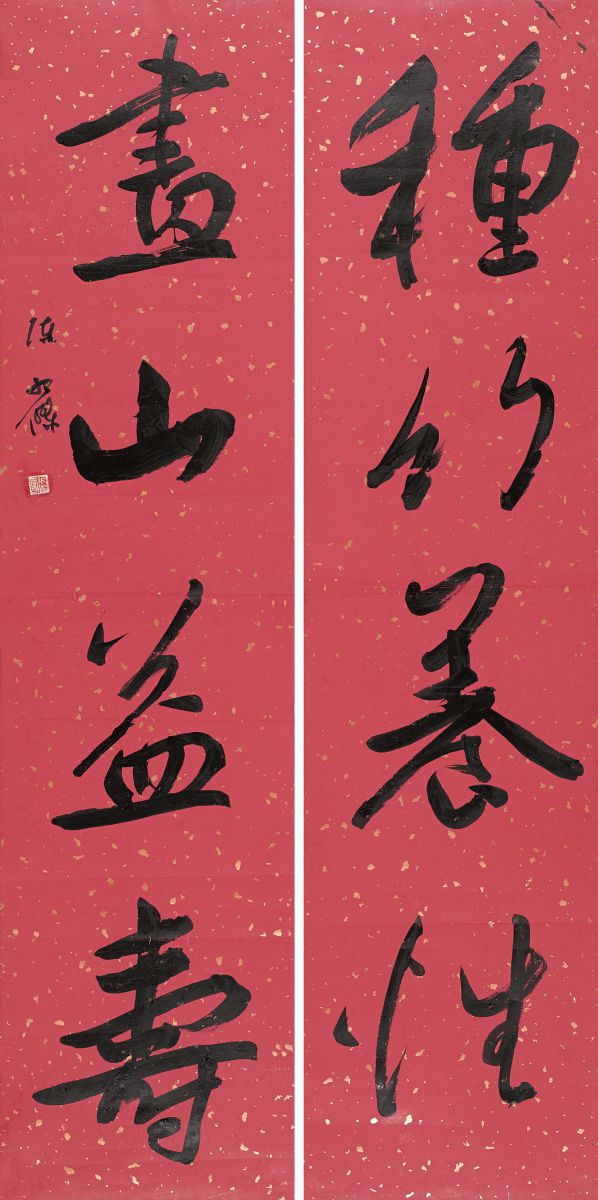 種竹養性
畫山益壽